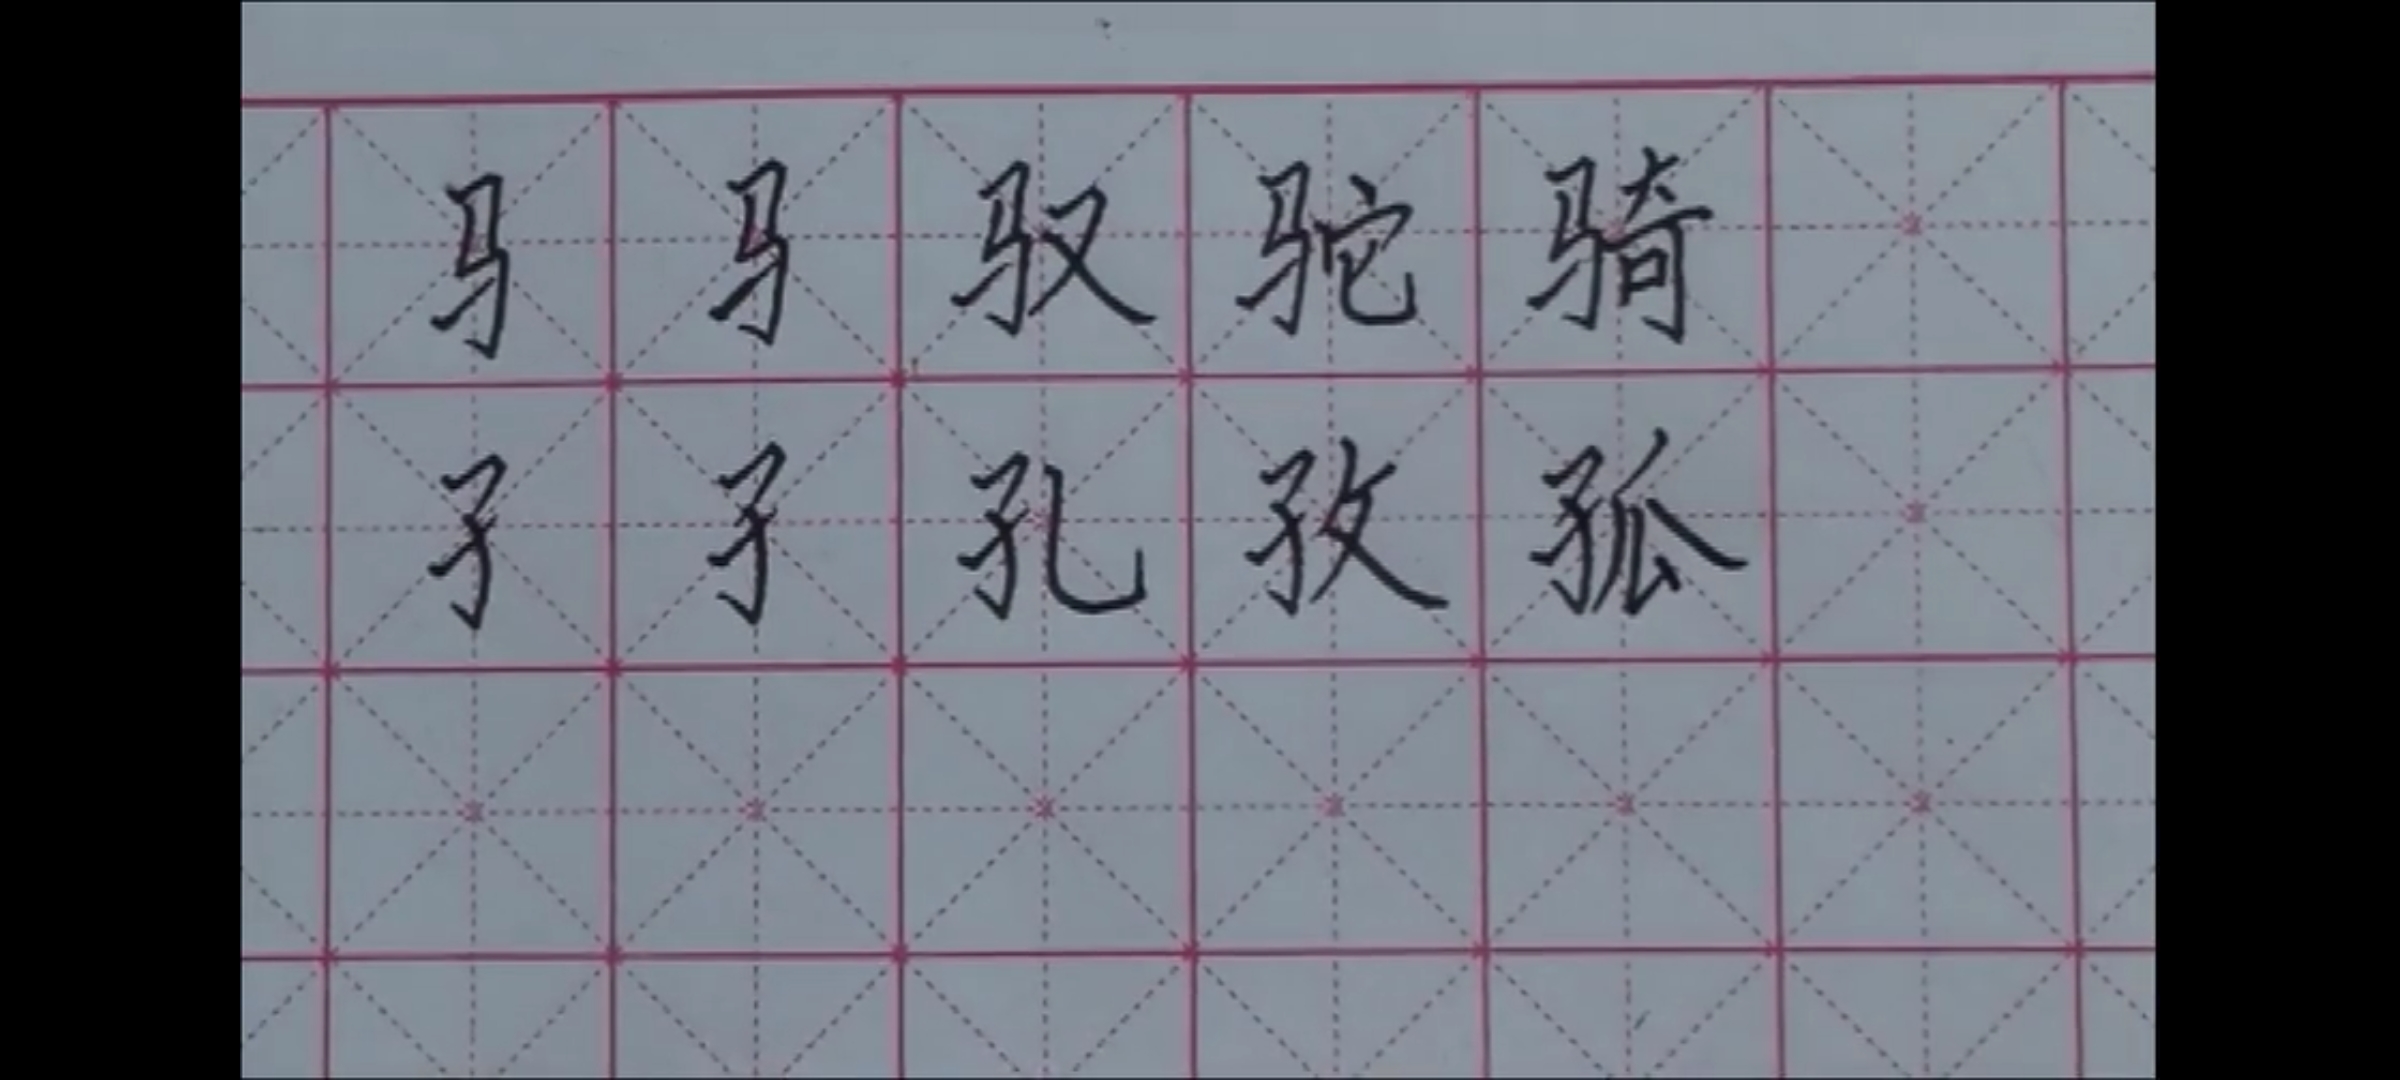 马马驭驼骑
孑孑孔孜孤